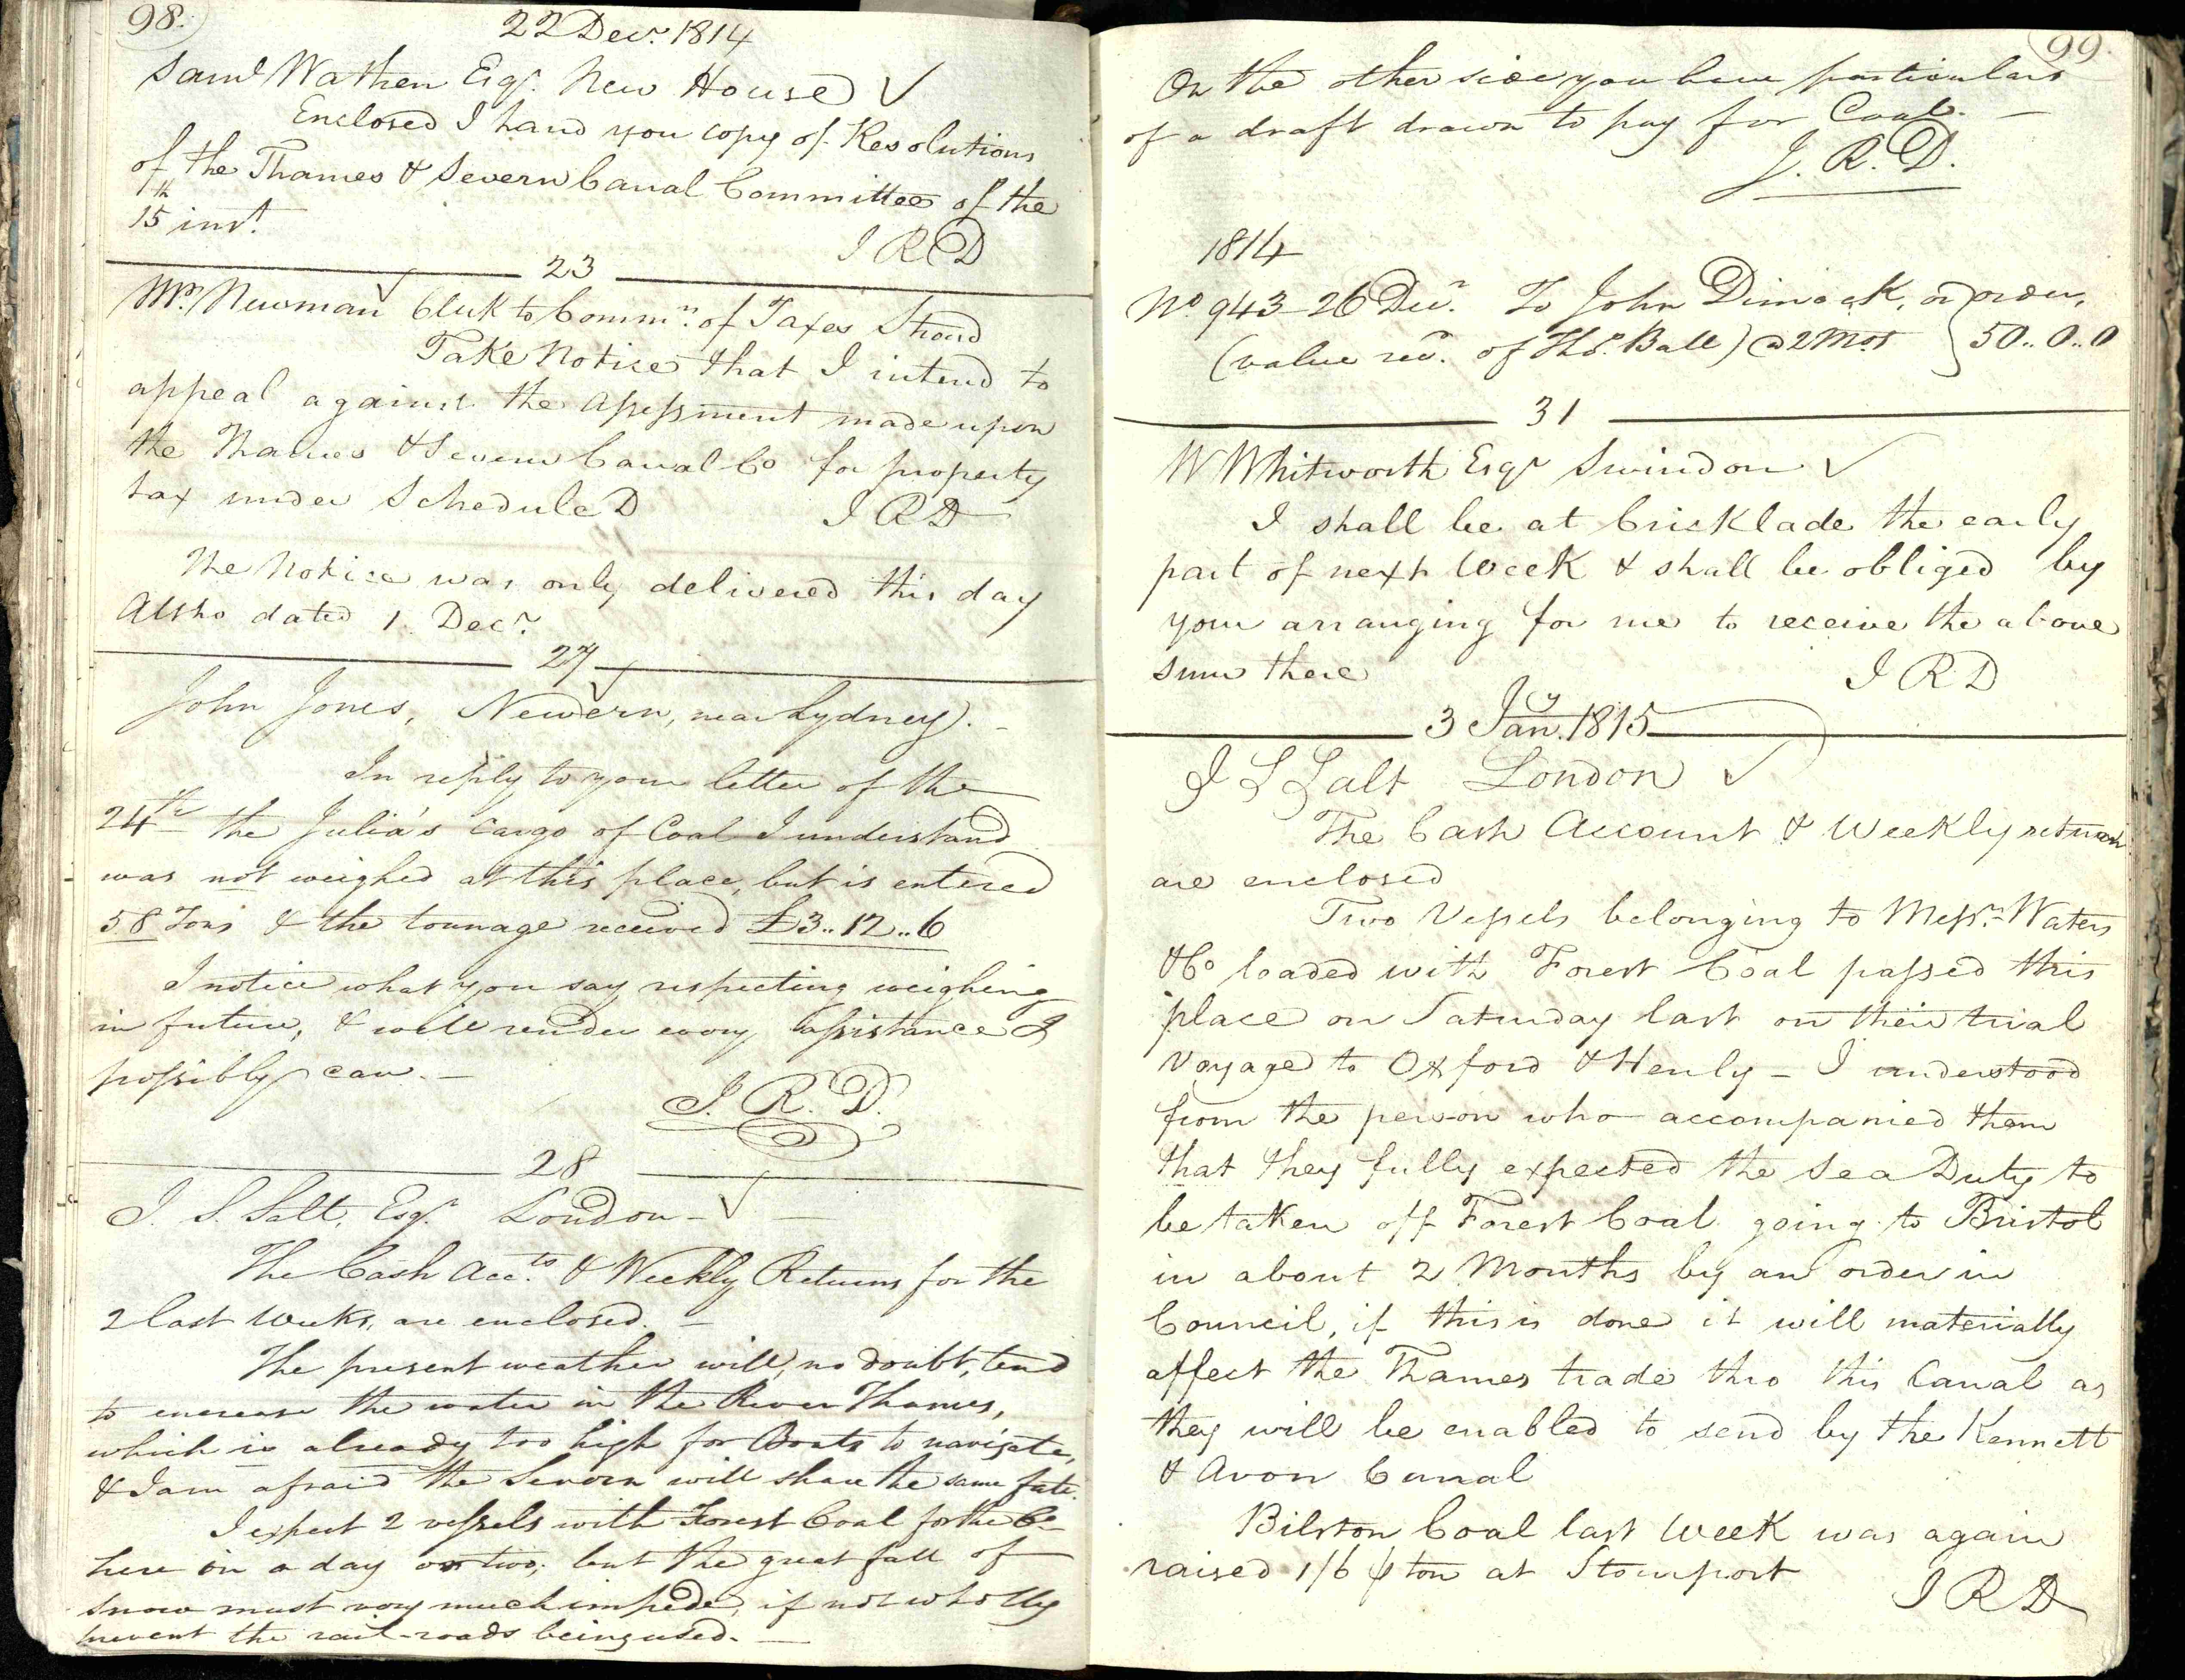 98.
22 Decr. 1814
Saml Wathen Esqr. New House ✓
Enclosed I hand you copy of Resolutions
of the Thames & Severn Canal Committee of the
15th inst.
I R D
23
Mr. Newman Clerk to Commrs. of Taxes Stroud
Take Notice that I intend to
appeal against the Assessment made upon
the Thames & Severn Canal Co for property
tax under Schedule D
I R D
The Notice was only delivered this day
Altho dated 1. Decr.
27
John Jones, Newern, near Lydney. -
In reply to your letter of the
24th the Julia's cargo of Coal I understand
was not weighed at this place, but is entered
58 Tons & the tonnage received £3..12..6
I notice what you say respecting weighing
in future, & will render every assistance I
possibly can. -
J. R. D.
28
J. S. Salt, Esqr. London - ✓ -
The Cash Accts. & Weekly Returns for the
2 last Weeks, are enclosed. -
The present weather will, no doubt, tend
to encrease the water in the River Thames,
which is already too high for Boats to navigate,
& I am afraid the Severn will share the same fate.
I expect 2 vessels with Forest Coal for the Co.
here in a day or two; but the great fall of
snow must very much impede, if not wholly
prevent the rail-roads being used. -
99.
On the other side you have particulars
of a draft drawn to pay for Coal. -
J. R. D.
1814
No 943 - 26 Decr. To John Dimock, or order,
(value recd. of Thos. Ball) @ 2 Mos } 50..0..0
31
W Whitworth Esqr Swindon ✓
I shall be at Cricklade the early
part of next Week & shall be obliged by
your arranging for me to receive the above
sum there
I R D
3 Jany. 1815
J S Salt London ✓
The Cash Account & Weekly return
are enclosed
Two Vessels belonging to Messrs. Waters
& Co loaded with Forest Coal passed this
place on Saturday last on their trial
Voyage to Oxford & Henly - I understood
from the person who accompanied them
that they fully expected the Sea Duty to
be taken off Forest Coal going to Bristol
in about 2 Months by an order in
Council, if this is done it will materially
affect the Thames trade thro this Canal as
they will be enabled to send by the Kennett
& Avon Canal
Bilston Coal last Week was again
raised 1/6 ⅌ ton at Stourport
I R D